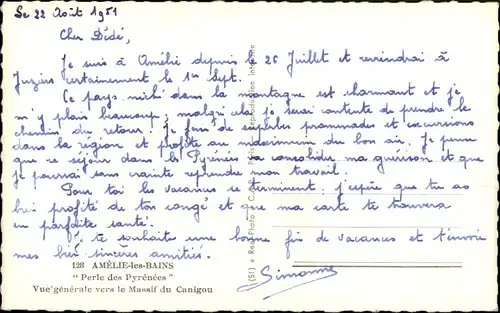 Le 22 Août 1951
Cher Dédé,
Je suis à Amélie depuis le 26 Juillet et reviendrai à
Juziers certainement le 1er Sept.
Ce pays niché dans la montagne est charmant et je
m'y plais beaucoup; malgré cela je serai contente de prendre le
chemin du retour. Je fais de superbes promenades et excursions
dans la région et profite au maximum du bon air. Je pense
que ce séjour dans les Pyrénées va consolider ma guérison et que
je pourrai sans crainte reprendre mon travail.
Pour toi les vacances se terminent; j'espère que tu as
bien profité de ton congé et que ma carte te trouvera
en parfaite santé.
Je te souhaite une bonne fin de vacances et t'envoie
mes bien sincères amitiés.
Simonne
128 AMÉLIE-les-BAINS
"Perle des Pyrénées"
Vue générale vers le Massif du Canigou